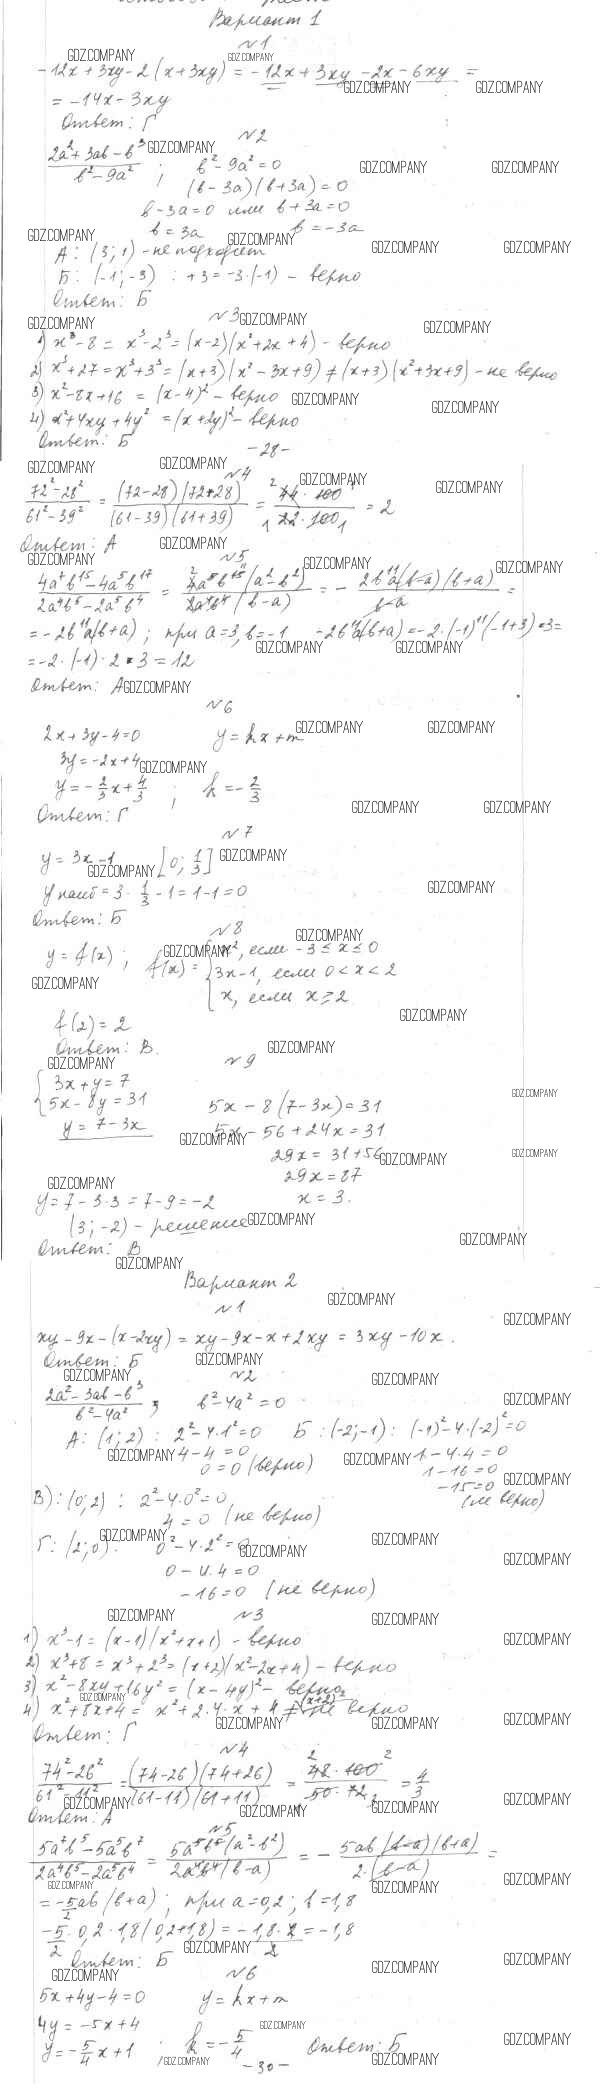 Вариант 1
№1
-12x + 3xy - 2(x + 3xy) = -12x + 3xy - 2x - 6xy =
= -14x - 3xy
Ответ: Г
№2
2a² + 3ab - b³ / b² - 9a² ; b² - 9a² = 0
(b - 3a)(b + 3a) = 0
b - 3a = 0 или b + 3a = 0
b = 3a b = -3a
А: (3; 1) - не подходит
Б: (-1; -3) : +3 = -3·(-1) - верно
Ответ: Б
№3
1) x³ - 8 = x³ - 2³ = (x - 2)(x² + 2x + 4) - верно
2) x³ + 27 = x³ + 3³ = (x + 3)(x² - 3x + 9) ≠ (x + 3)(x² + 3x + 9) - не верно
3) x² - 8x + 16 = (x - 4)² - верно
4) x² + 4xy + 4y² = (x + 2y)² - верно
Ответ: Б
-28-
№4
72² - 28² / 61² - 39² = (72 - 28)(72 + 28) / (61 - 39)(61 + 39) = 44 · 100 / 22 · 100 = 2
Ответ: А
№5
4a⁷b¹⁵ - 4a⁵b¹⁷ / 2a⁴b⁵ - 2a⁵b⁴ = 4a⁵b¹⁵(a² - b²) / 2a⁴b⁴(b - a) = - 2b¹¹a(b - a)(b + a) / b - a =
= -2b¹¹a(b + a); при a = 3, b = -1 -2b¹¹a(b + a) = -2·(-1)¹¹(-1 + 3)·3 =
= -2·(-1)·2·3 = 12
Ответ: А
№6
2x + 3y - 4 = 0 y = kx + m
3y = -2x + 4
y = -2/3 x + 4/3 ; k = -2/3
Ответ: Г
№7
y = 3x - 1 [0; 1/3]
y наиб = 3 · 1/3 - 1 = 1 - 1 = 0
Ответ: Б
№8
y = f(x); f(x) = { x², если -3 ≤ x ≤ 0
3x - 1, если 0 < x < 2
x, если x ≥ 2
f(2) = 2
Ответ: В.
№9
{ 3x + y = 7
5x - 8y = 31 5x - 8(7 - 3x) = 31
y = 7 - 3x 5x - 56 + 24x = 31
29x = 31 + 56
29x = 87
y = 7 - 3·3 = 7 - 9 = -2 x = 3.
(3; -2) - решение
Ответ: В
Вариант 2
№1
xy - 9x - (x - 2xy) = xy - 9x - x + 2xy = 3xy - 10x.
Ответ: Б
№2
2a² - 3ab - b³ / b² - 4a² ; b² - 4a² = 0
А: (1; 2) : 2² - 4·1² = 0 Б: (-2; -1) : (-1)² - 4·(-2)² = 0
4 - 4 = 0 1 - 4·4 = 0
0 = 0 (верно) 1 - 16 = 0
-15 = 0
(не верно)
В): (0; 2) : 2² - 4·0² = 0
4 = 0 (не верно)
Г: (2; 0): 0² - 4·2² = 0
0 - 4·4 = 0
-16 = 0 (не верно)
№3
1) x³ - 1 = (x - 1)(x² + x + 1) - верно
2) x³ + 8 = x³ + 2³ = (x + 2)(x² - 2x + 4) - верно
3) x² - 8xy + 16y² = (x - 4y)² - верно
4) x² + 8x + 4 = x² + 2·4·x + 4 ≠ (x + 2)² не верно
Ответ: Г
№4
74² - 26² / 61² - 11² = (74 - 26)(74 + 26) / (61 - 11)(61 + 11) = 48 · 100 / 50 · 72 = 4/3
Ответ: А
№5
5a⁷b⁵ - 5a⁵b⁷ / 2a⁴b⁵ - 2a⁵b⁴ = 5a⁵b⁵(a² - b²) / 2a⁴b⁴(b - a) = - 5ab(b - a)(b + a) / 2·(b - a) =
= -5/2 ab(b + a); при a = 0,2; b = 1,8
-5/2 · 0,2 · 1,8(0,2 + 1,8) = -1,8·2 / 2 = -1,8
Ответ: Б
№6
5x + 4y - 4 = 0 y = kx + m
4y = -5x + 4
y = -5/4 x + 1 ; k = -5/4 Ответ: Б
-30-
GDZ.COMPANY